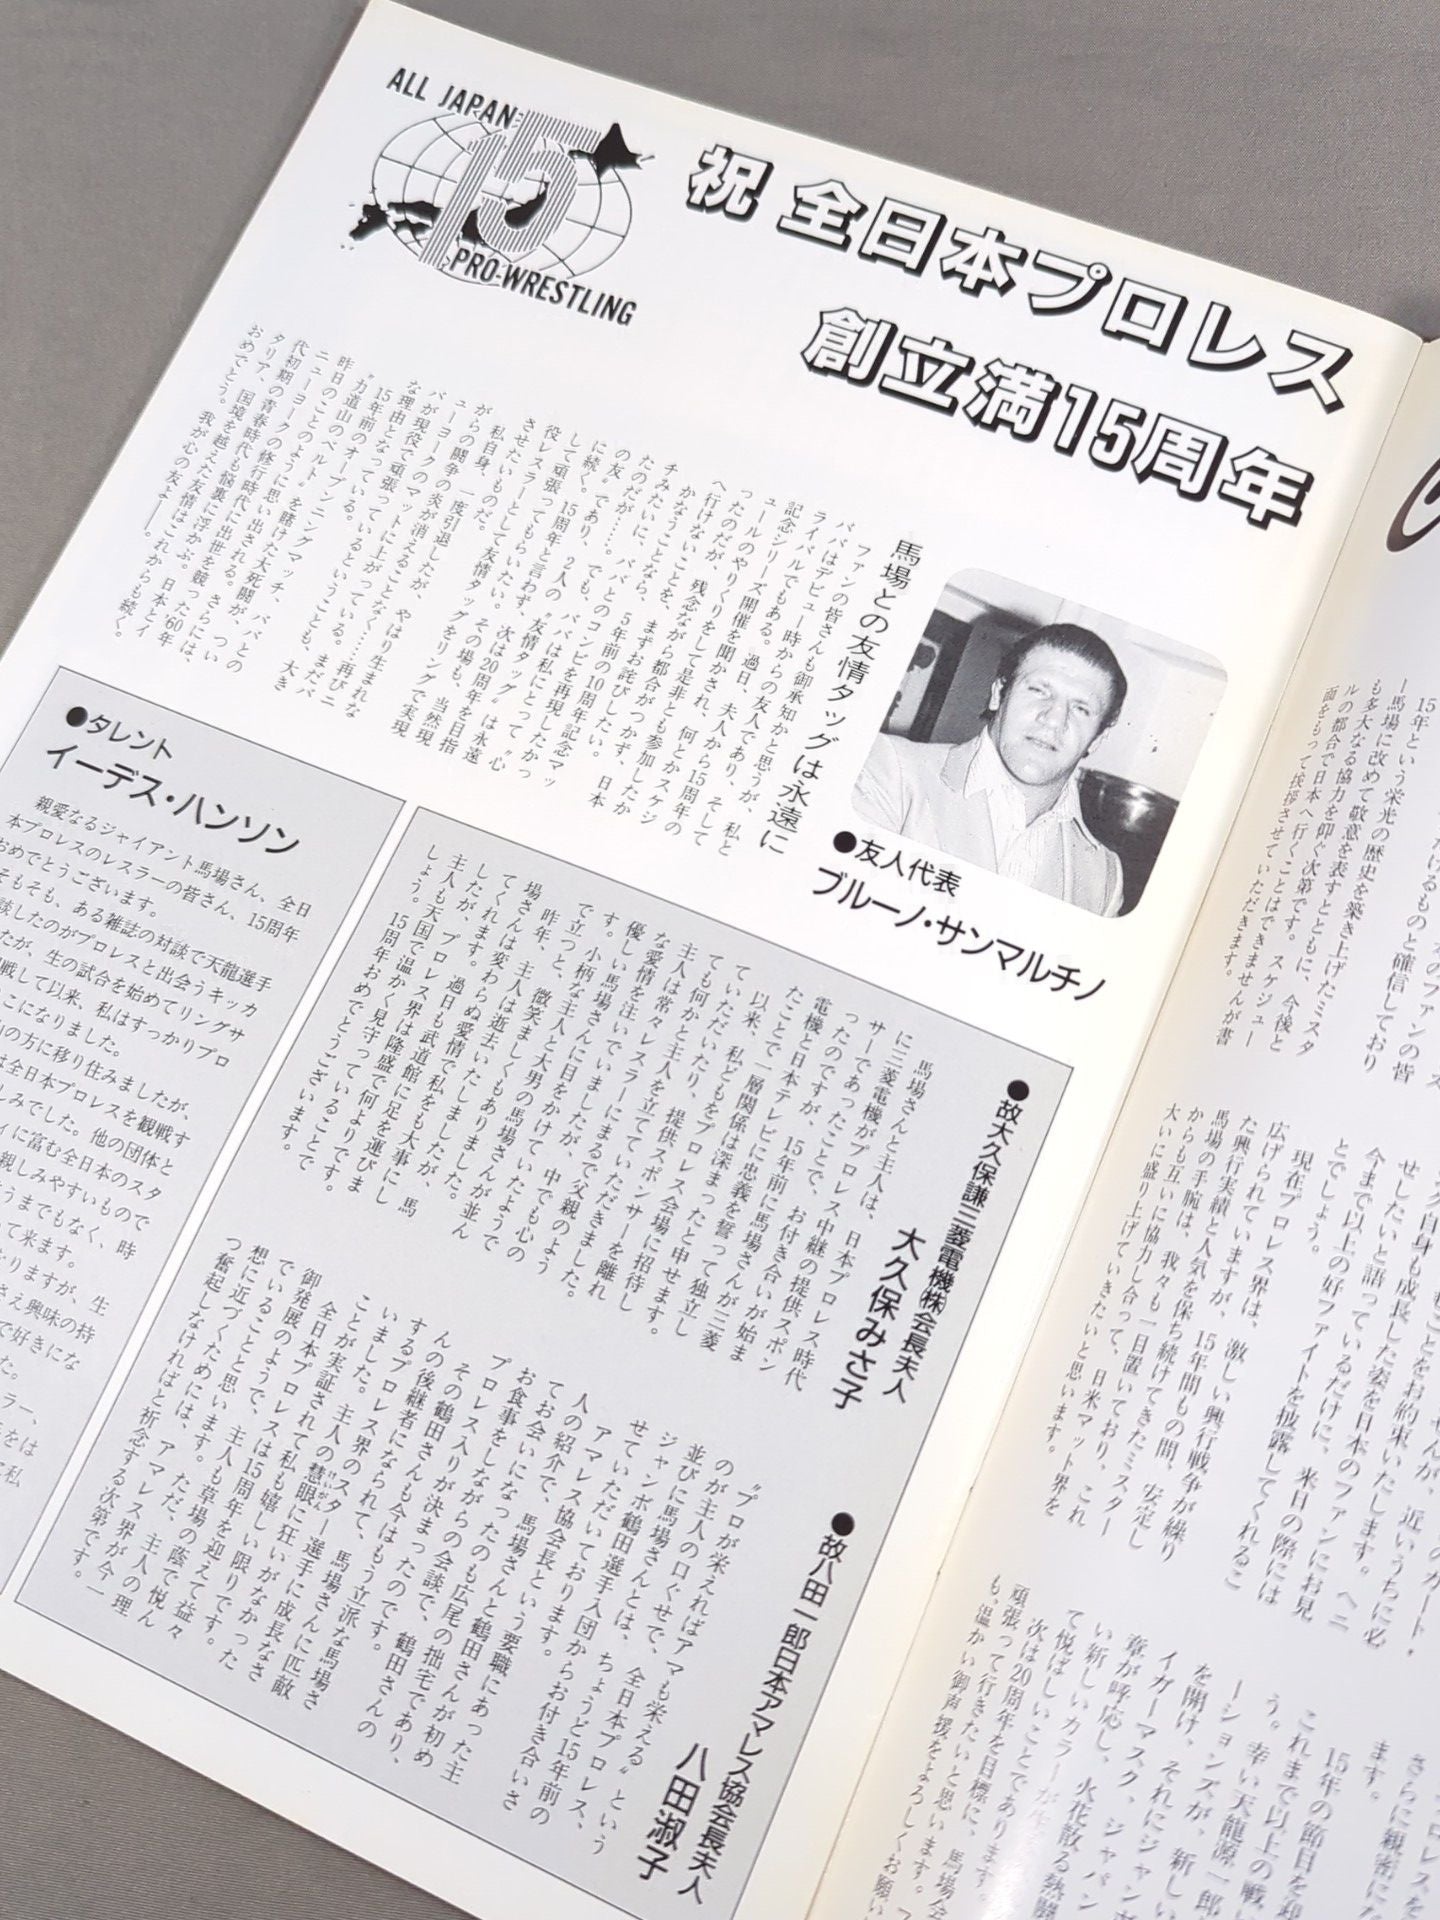 ALL JAPAN
15
PRO-WRESTLING
祝 全日本プロレス
創立満15周年
馬場との友情タッグは永遠に
●友人代表
ブルーノ・サンマルチノ
ファンの皆さんも御承知かと思うが、私と
ババはデビュー時からの友人であり、そして
ライバルでもある。過日、夫人から15周年の
記念シリーズ開催を聞かされ、何とかスケジ
ュールのやりくりをして是非とも参加したか
ったのだが、残念ながら都合がつかず、日本
へ行けないことを、まずお詫びしたい。
かなうことなら、5年前の10周年記念マッ
チみたいに、ババとのコンビを再現したかっ
たのだが……。でも、ババは私にとって〝心
の友〟であり、2人の〝友情タッグ〟は永遠
に続く。15周年と言わず、次は20周年を目指
して頑張ってもらいたい。その場も、当然現
役レスラーとして友情タッグをリングで実現
させたいものだ。
私自身、一度引退したが、やはり生まれな
がらの闘争の炎が消えることなく……再びニ
ューヨークのマットに上がっている。まだバ
バが現役で頑張っているということも、大き
な理由となっている。
15年前のオープニングマッチ、ババとの
〝力道山のベルト〟を賭けた大死闘が、つい
昨日のことのように思い出される。さらには、
ニューヨークの修行時代に出世を競った60年
代初期の青春時代も悩裏に浮かぶ。日本とイ
タリア、国境を越えた友情はこれからも続く。
おめでとう。我が心の友よ――。
●タレント
イーデス・ハンソン
親愛なるジャイアント馬場さん、全日
本プロレスのレスラーの皆さん、15周年
おめでとうございます。
そもそも、ある雑誌の対談で天龍選手
談したのがプロレスと出会うキッカ
たが、生の試合を始めてリングサ
戦して以来、私はすっかりプロ
こになりました。
の方に移り住みましたが、
は全日本プロレスを観戦す
しみでした。他の団体と
ィに富む全日本のスタ
親しみやすいもので
うまでもなく、時
って来ます。
なりますが、生
さえ興味の持
で好きにな
た。
ラー、
をは
私
●故大久保謙三菱電機㈱会長夫人
大久保みさ子
馬場さんと主人は、日本プロレス時代
に三菱電機がプロレス中継の提供スポン
サーであったことで、お付き合いが始ま
ったのですが、15年前に馬場さんが三菱
電機と日本テレビに忠義を誓って独立し
たことで一層関係は深まったと申せます。
以来、私どもをプロレス会場に招待し
ていただいたり、提供スポンサーを離れ
ても何かと主人を立てていただきました。
主人は常々レスラーにまるで父親のよう
な愛情を注いでいましたが、中でも心の
優しい馬場さんに目をかけていたようで
す。小柄な主人と大男の馬場さんが並ん
で立つと、微笑ましくもありました。
昨年、主人は逝去いたしましたが、馬
場さんは変わらぬ愛情で私をも大事にし
てくれます。過日も武道館に足を運びま
したが、プロレス界は隆盛で何よりです。
主人も天国で温かく見守っていることで
しょう。15周年おめでとうございます。
●故八田一郎日本アマレス協会長夫人
八田淑子
〝プロが栄えればアマも栄える〟という
のが主人の口ぐせで、全日本プロレス、
並びに馬場さんとは、ちょうど15年前の
ジャンボ鶴田選手入団からお付き合いさ
せていただいております。
アマレス協会長という要職にあった主
人の紹介で、馬場さんと鶴田さんが初め
てお会いになったのも広尾の拙宅であり、
お食事をしながらの会談で、鶴田さんの
プロレス入りが決まったのです。
その鶴田さんも今はもう立派な馬場さ
んの後継者になられて、馬場さんに匹敵
するプロレス界のスター選手に成長なさ
いました。主人の慧眼に狂いがなかった
ことが実証されて私も嬉しい限りです。
全日本プロレスは15周年を迎えて益々
御発展のようで、主人も草場の蔭で悦ん
でいることと思います。ただ、主人の理
想に近づくためには、アマレス界が今一
つ奮起しなければと祈念する次第です。
15年という栄光の歴史を築き上げたミスタ
ー馬場に改めて敬意を表すとともに、今後と
も多大なる協力を仰ぐ次第です。スケジュー
ルの都合で日本へ行くことはできませんが書
面をもって挨拶させていただきます。
せしたいと語っているだけに、来日の際には
今まで以上の好ファイトを披露してくれるこ
とでしょう。
現在プロレス界は、激しい興行戦争が繰り
広げられていますが、15年間もの間、安定し
た興行実績と人気を保ち続けてきたミスター
馬場の手腕は、我々も一目置いており、これ
からも互いに協力し合って、日米マット界を
大いに盛り上げていきたいと思います。
さらに親密にな
ます。
15年の節目を迎
これまで以上の戦い
う。幸い天龍源一郎
ーションズが、新しい
を開け、それにジャンボ
イガーマスク、ジャパン
い新しいカラーが
て悦ばしいことであります。
次は20周年を目標に、馬場会
頑張って行きたいと思います。フ
も、温かい御声援をよろしくお願い